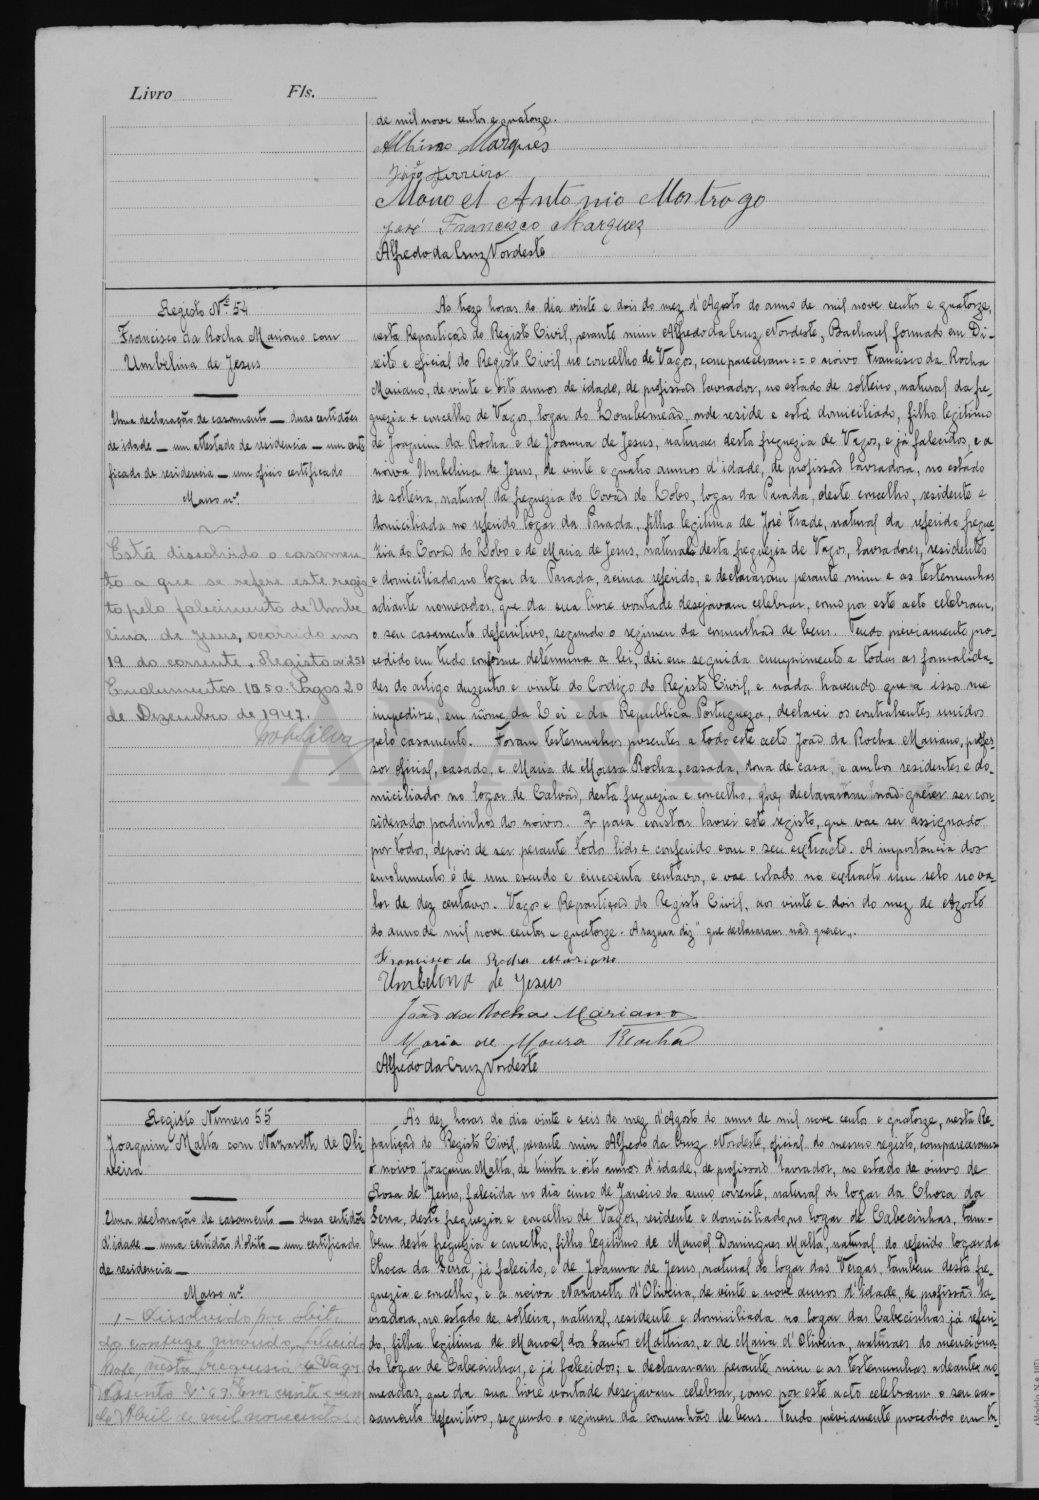 Livro Fls.
de mil nove centos e quatorze.
Albino Marques
João Ferreira
Manoel Antonio Mostrogo
José Francisco Marques
Alfredo da Cruz Nordeste
Registo Nº 54
Francisco da Rocha Mariano com
Umbelina de Jesus
Uma declaração de casamento — duas certidões
de idade — um attestado de residencia — um certi
ficado de residencia — um oficio certificado
Masso nº
Está dissolvido o casamen
to a que se refere este regis
to pelo falecimento de Umbe
lina de Jesus, ocorrido em
19 do corrente. Registo nº 251
Emolumentos 1$50. Vagos 20
de Dezembro de 1947.
Ás treze horas do dia vinte e dois do mez d'Agosto do anno de mil nove centos e quatorze,
nesta Repartição do Registo Civil, perante mim Alfredo da Cruz Nordeste, Bacharel formado em Di-
reito e oficial do Registo Civil no concelho de Vagos, compareceram == o noivo Francisco da Rocha
Mariano, de vinte e oito annos de idade, de profissão lavrador, no estado de solteiro, natural da fre-
guezia e concelho de Vagos, logar do Lombomeão, onde reside e está domiciliado, filho legitimo
de Joaquim da Rocha e de Joanna de Jesus, naturaes desta freguezia de Vagos, e já falecidos, e a
noiva Umbelina de Jesus, de vinte e quatro annos d'idade, de profissão lavradora, no estado
de solteira, natural da freguezia do Covão do Lobo, logar da Parada, deste concelho, residente e
domiciliada no referido logar da Parada, filha legitima de José Frade, natural da referida fregue-
zia do Covão do Lobo e de Maria de Jesus, natural desta freguezia de Vagos, lavradores, residentes
e domiciliados no logar da Parada, acima referido, e declararam perante mim e as testemunhas
adiante nomeadas, que da sua livre vontade desejavam celebrar, como por este acto celebram,
o seu casamento definitivo, segundo o regimen da comunhão de bens. Tendo préviamente pro-
cedido em tudo conforme determina a lei, dei em seguida cumprimento a todas as formalida-
des do artigo duzentos e vinte do Codigo do Registo Civil, e nada havendo que a isso me
impedisse, em nome da Lei e da Republica Portugueza, declarei os contrahentes unidos
pelo casamento. Foram testemunhas presentes a todo este acto João da Rocha Mariano, profes-
sor oficial, casado, e Maria de Moura Rocha, casada, dona de casa, e ambos residentes e do-
miciliados no logar de Calvão, desta freguezia e concelho, que declararam não querer ser con-
siderados padrinhos dos noivos. E para constar lavrei este registo, que vae ser assignado
por todos, depois de ser perante todos lido e conferido com o seu extracto. A importancia dos
emolumentos é de um escudo e cincoenta centavos, e vae colado no extracto um selo no va-
lor de dez centavos. Vagos e Repartição do Registo Civil, aos vinte e dois do mez de Agosto
do anno de mil nove centos e quatorze. A rasura diz "que declararam não querer".
Francisco da Rocha Mariano
Umbelona de Jesus
João da Rocha Mariano
Maria de Moura Rocha
Alfredo da Cruz Nordeste
ADAVR
Registo Número 55
Joaquim Malta com Nazareth de Oli-
veira
Uma declaração de casamento — duas certidões
d'idade — uma certidão d'óbito — um certificado
de residencia —
Masso nº
1 - Dissolvido por óbit.
do conjuge marido, falecido
hoje, nesta freguesia de Vagos
Assento nº 69. Em vinte e um
de Abril de mil novecentos e
Ás dez horas do dia vinte e seis do mez d'Agosto do anno de mil nove centos e quatorze, nesta Re-
partição do Registo Civil, perante mim Alfredo da Cruz Nordeste, oficial do mesmo registo, compareceram=
o noivo Joaquim Malta, de trinta e oito annos d'idade, de profissão lavrador, no estado de viuvo de
Rosa de Jesus, falecida no dia cinco de Janeiro do anno corrente, natural do logar da Choca da
Serra, deste freguezia e concelho de Vagos, residente e domiciliado no logar de Cabecinhas, tam-
bem desta freguezia e concelho, filho legitimo de Manoel Domingues Malta, natural do referido logar da
Choca da Serra, já falecido, e de Joanna de Jesus, natural do logar das Vergas, tambem desta fre-
guezia e concelho, e a noiva Nazareth d'Oliveira, de vinte e nove annos d'idade, de profissão la-
vradora, no estado de solteira, natural, residente e domiciliada no logar das Cabecinhas já referi-
do, filha legitima de Manoel dos Santos Mathias, e de Maria d'Oliveira, naturaes do menciona-
do logar de Cabecinhas, e já falecidos; e declararam perante mim e as testemunhas adeante no-
meadas, que da sua livre vontade desejavam celebrar, como por este acto celebram o seu ca-
samento definitivo, segundo o regimen da comunhão de bens. Tendo préviamente procedido em tu-